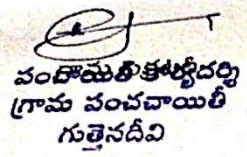 పంచాయతీ కార్యదర్శి
గ్రామ పంచచాయితీ
గుత్తెనదీవి